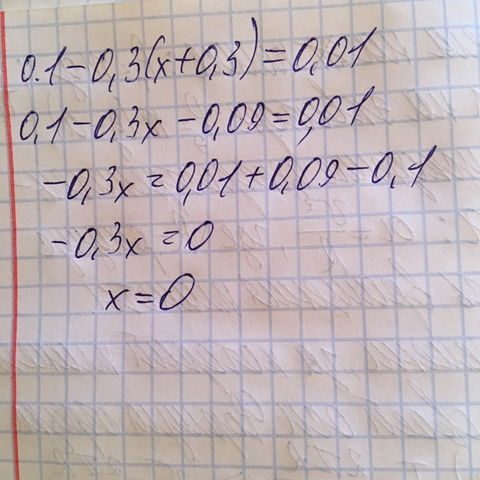 0.1-0,3(x+0,3)=0,01
0,1-0,3x-0,09=0,01
-0,3x=0,01+0,09-0,1
-0,3x=0
x=0